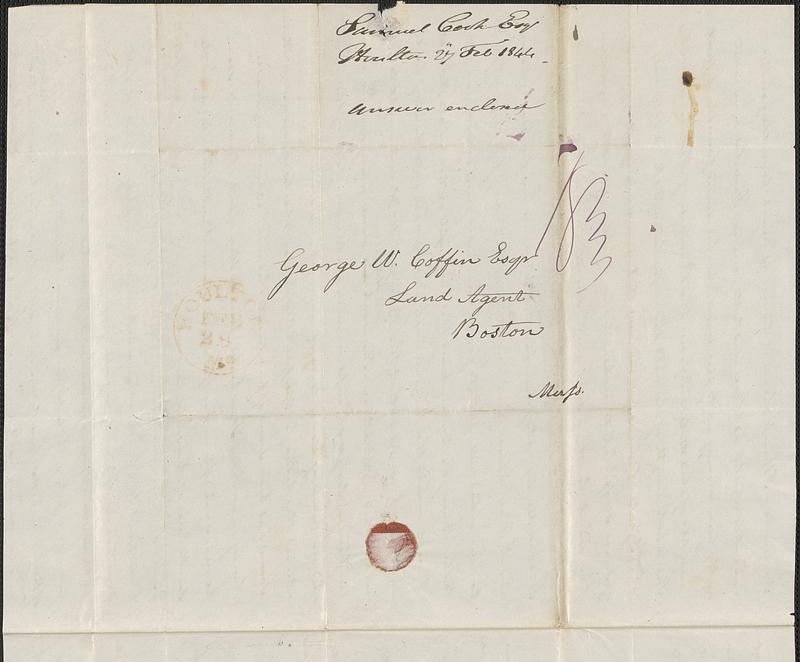 Samuel Cook Esq
Houlton 27 Feb 1844
answer enclosed
George W. Coffin Esqr
Land Agent
Boston
Mass.
HOULTON
FEB
28
Me